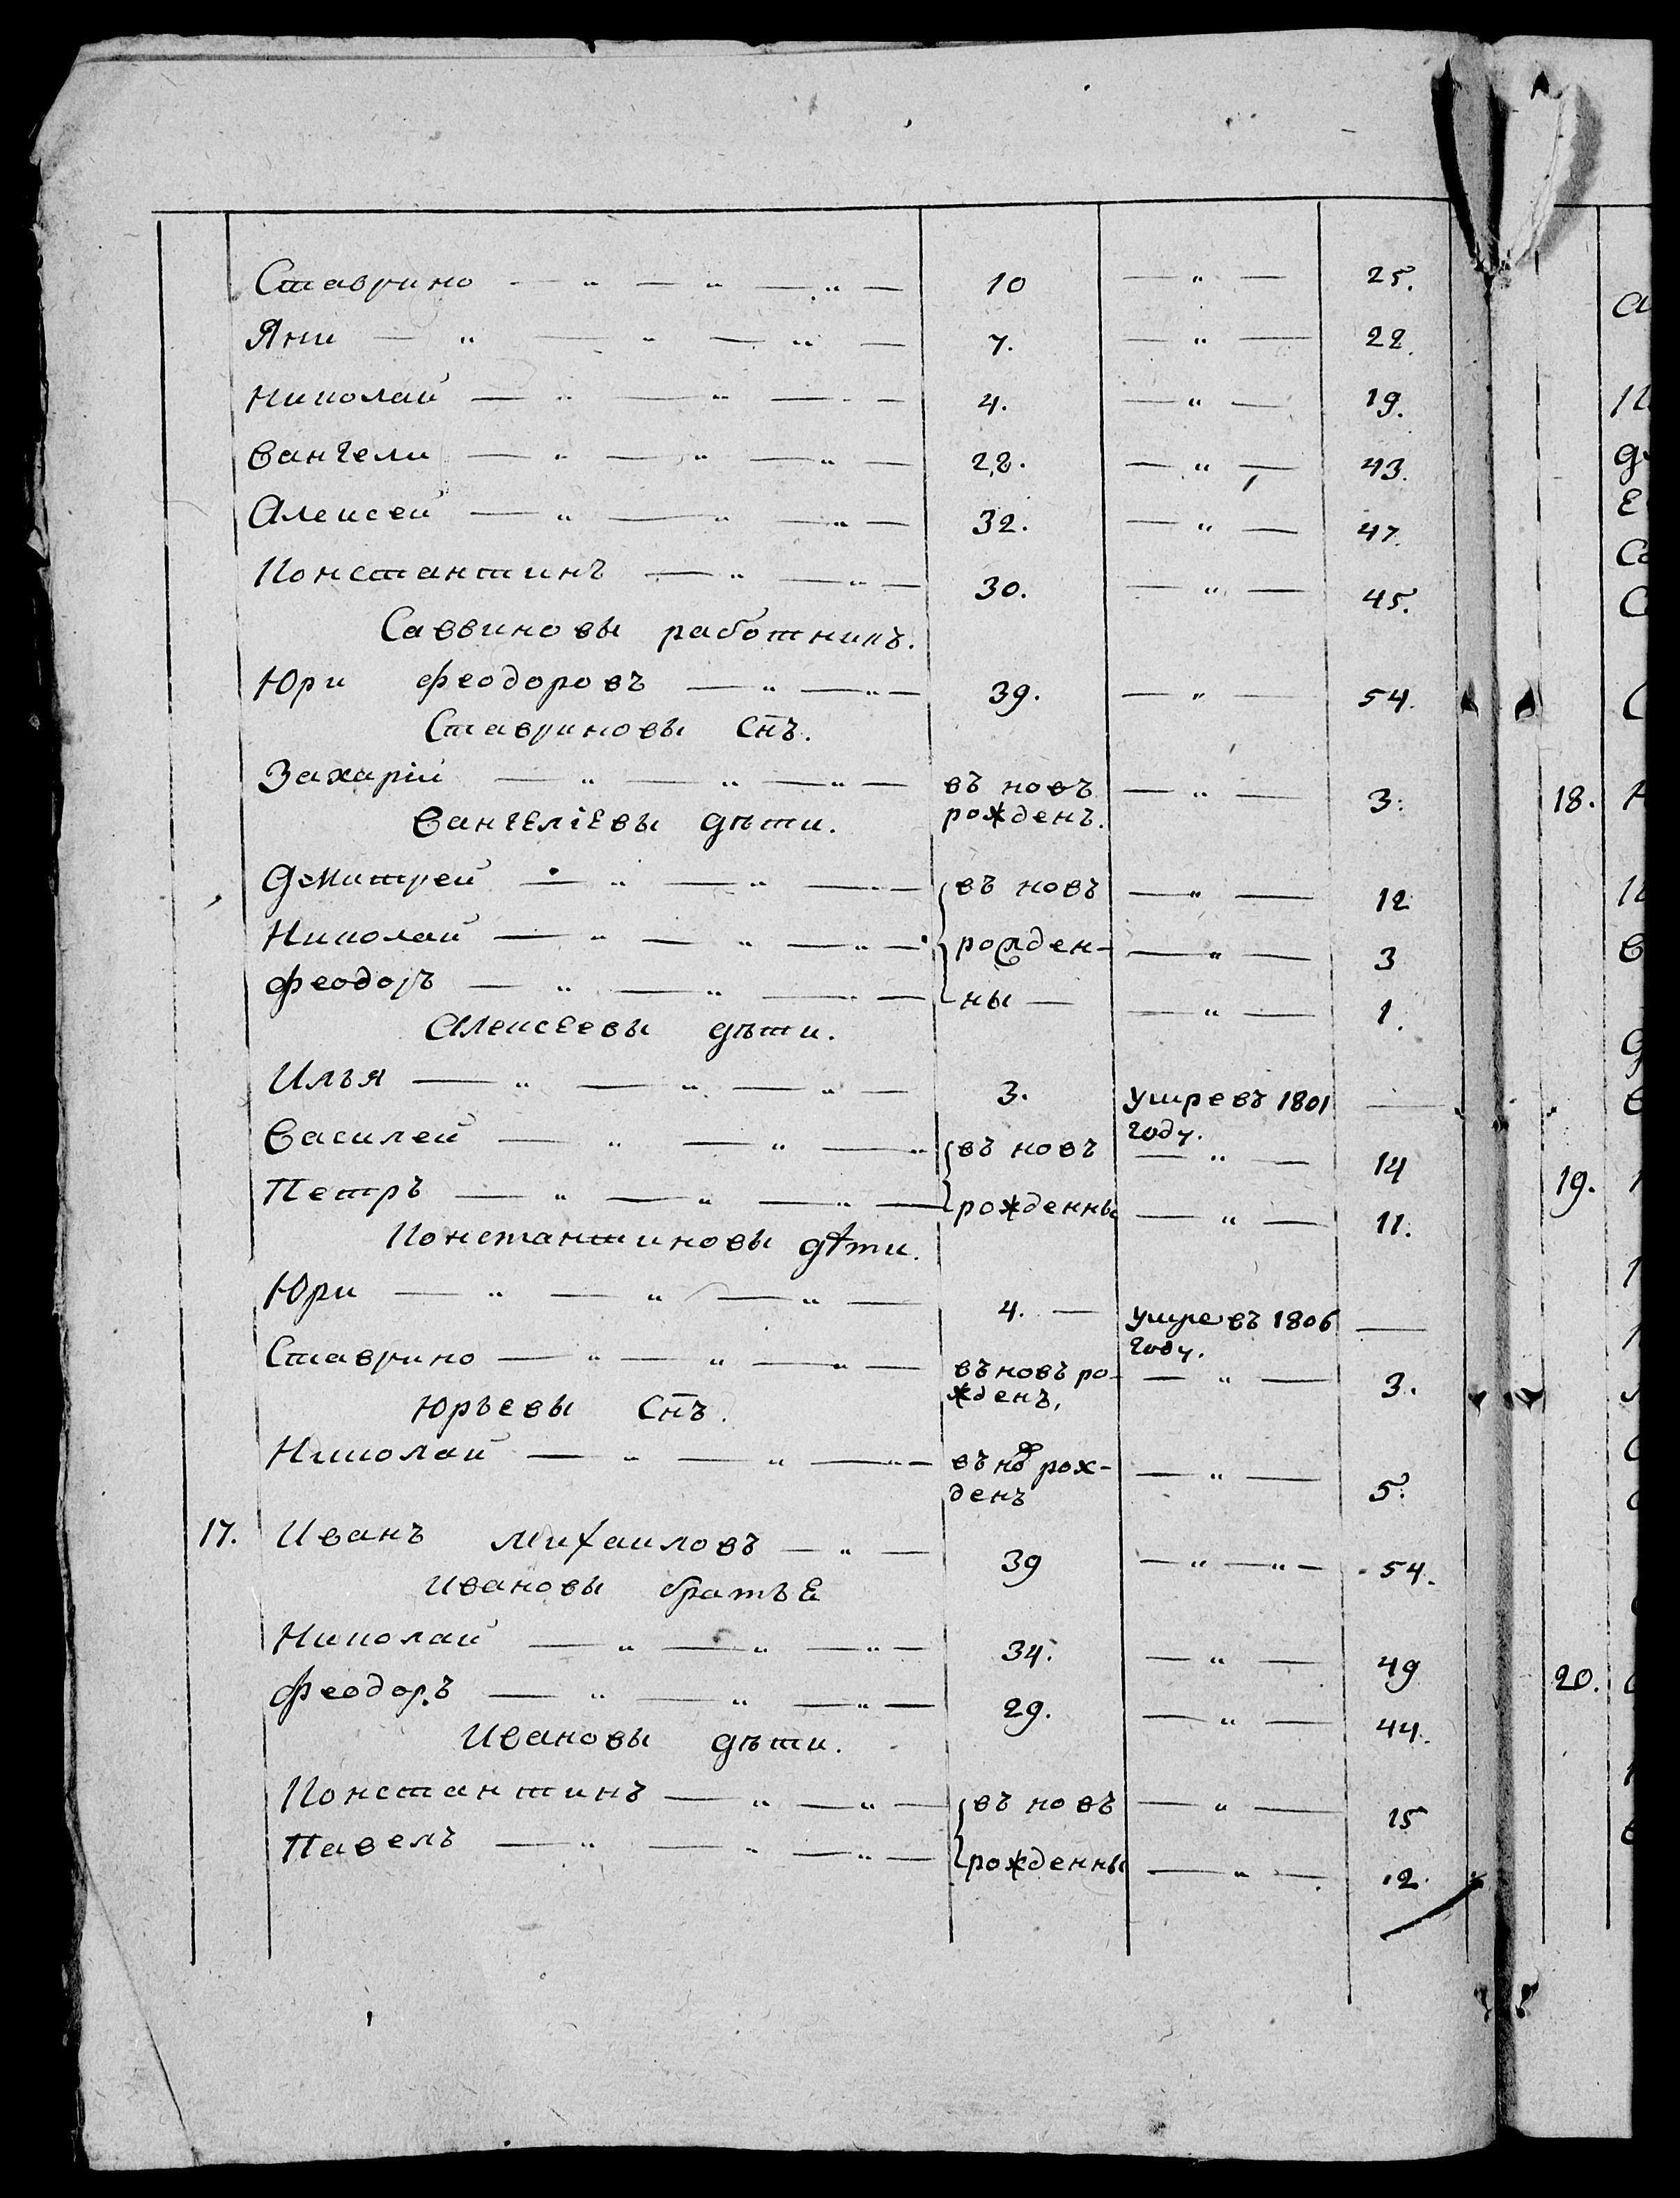 Ставрино — " — " — " — 10 — " — 25.
Яни — " — " — " — 7. — " — 22.
Николай — " — " — " — 4. — " — 19.
Вангели — " — " — " — 28. — " — 43.
Алексей — " — " — " — 32. — " — 47.
Константинъ — " — " — 30. — " — 45.
Саввиновы работникъ.
Юри Феодоровъ — " — " — 39. — " — 54.
Ставриновы Снъ.
Захарій — " — " — " — въ новъ — " — 3.
Вангеліевы дѣти. рожденъ.
Дмитрей — " — " — въ новъ — " — 12
Николай — " — " — " — рожден- — " — 3
Феодоръ — " — " — ны — — " — 1.
Алексеевы дѣти.
Илья — " — " — " — 3. умре въ 1801 —
году.
Василей — " — " — " въ новъ — " — 14
Петръ — " — " — " — рожденны — " — 11.
Константиновы дѣти.
Юри — " — " — " — 4. — умре въ 1806 —
году.
Ставрино — " — " — " — въ новъ ро- — " — 3.
Юрьевы Снъ. жденъ.
Николай — " — " — " — въ нов рож- — " — 5.
денъ
17. Иванъ Михаиловъ — " — 39 — " — " — 54.
Ивановы братье
Николай — " — " — " — 34. — " — 49
Феодоръ — " — " — " — 29. — " — 44.
Ивановы дѣти.
Константинъ — " — " — въ новъ — " — 15
Павелъ — " — " — " — рожденны — " — 12.
18.
19.
20.